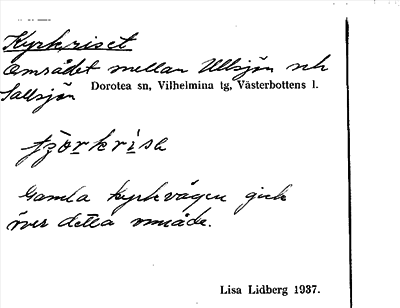 Kyrkriset
Området mellan Ullsjön och
Sallsjön
Dorotea sn, Vilhelmina tg, Västerbottens l.
Gamla kyrkvägen gick
över detta område.
Lisa Lidberg 1937.